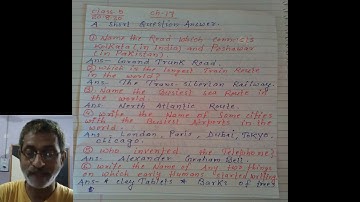 Class-5
Ch-19
A. Short Question Answer.
① Name the Road which connects
Kolkata (in India) and Peshawar
(in Pakistan)
Ans- Grand Trunk Road.
② Which is the longest Train Route
in the world?
Ans- The Trans-Siberian Railway.
③ Name the Busiest Sea Route in
the world
Ans- North Atlantic Route.
④ Write the Name of Some cities
with the Busiest Airports in the
world.
Ans- London, Paris, Dubai, Tokyo,
Chicago.
⑤ Who invented the Telephone?
Ans- Alexander Graham Bell.
⑥ Write the Name of Any two things
on which early Humans started writing
Ans- * clay Tablets * Barks of tree